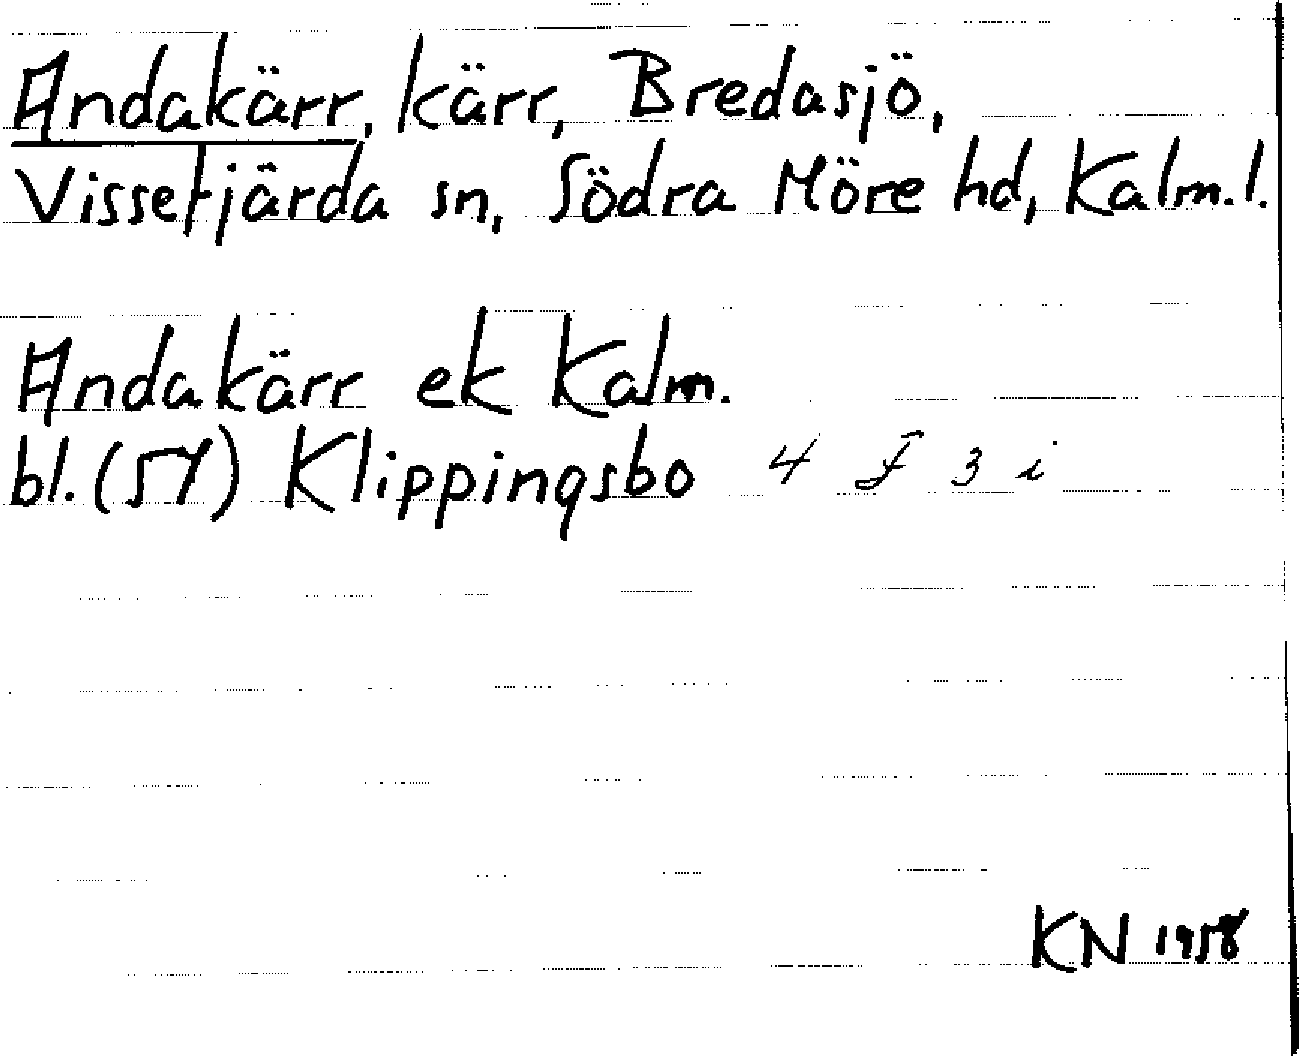 Andakärr, kärr, Bredasjö,
Vissefjärda sn, Södra Möre hd, Kalm. l.
Andakärr ek Kalm.
bl. (51) Klippingsbo 4 F 3 i
KN 1958